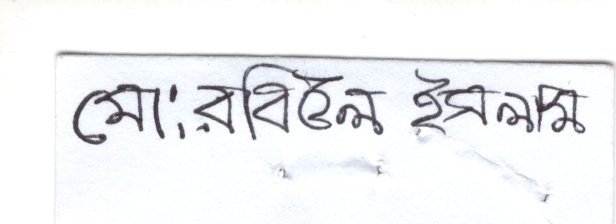 মো: রবিউল ইসলাম